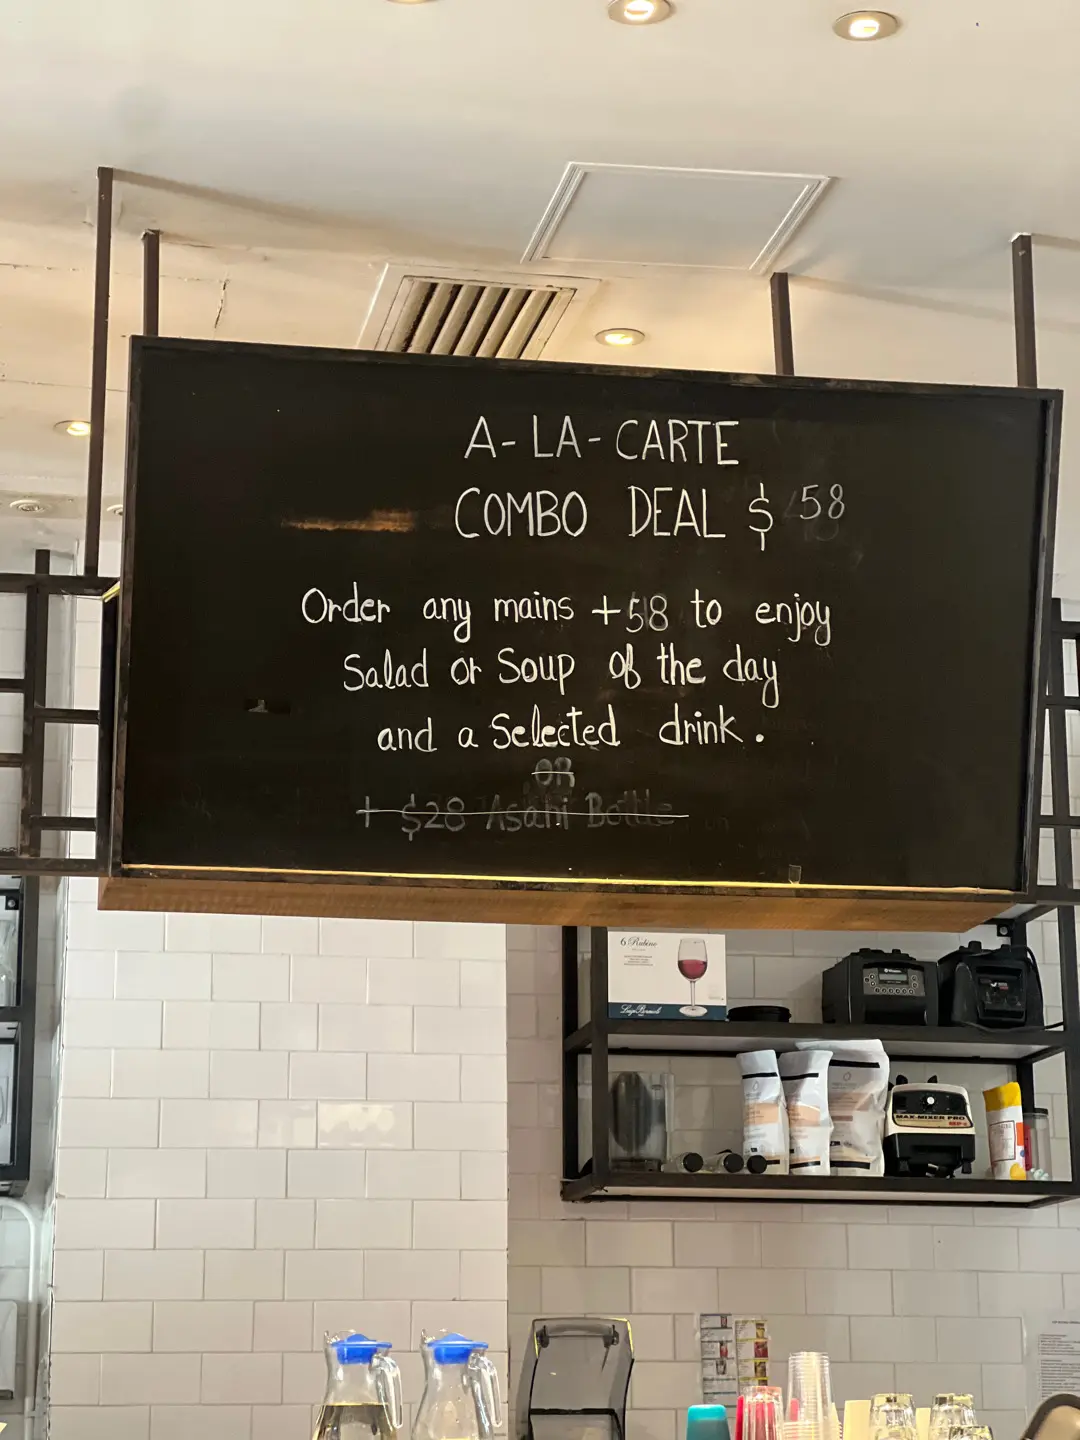 A-LA-CARTE
COMBO DEAL $ 58
Order any mains +58 to enjoy
Salad or Soup of the day
and a Selected drink.
OR
+ $28 Asahi Bottle
6 Rubino
Luigi Bormioli
MAX-MIXER PRO